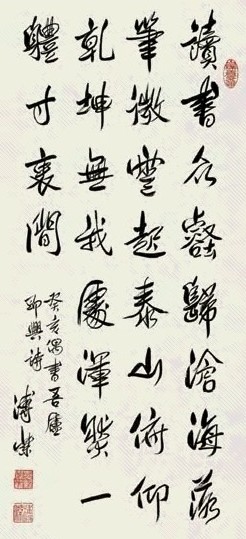 讀書众壑歸滄海落
筆微雲起泰山俯仰
乾坤無我處渾然一
體寸衷間
癸亥偶書吾廬
即興詩 溥傑